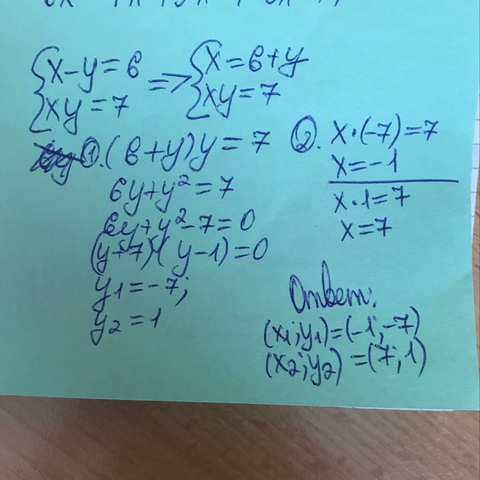 {x-y=6 => {x=6+y
{xy=7 {xy=7
①.(6+y)y=7
6y+y²=7
6y+y²-7=0
(y+7)(y-1)=0
y₁=-7;
y₂=1
②. x·(-7)=7
x=-1
x·1=7
x=7
Ответ:
(x₁;y₁)=(-1;-7)
(x₂;y₂)=(7;1)